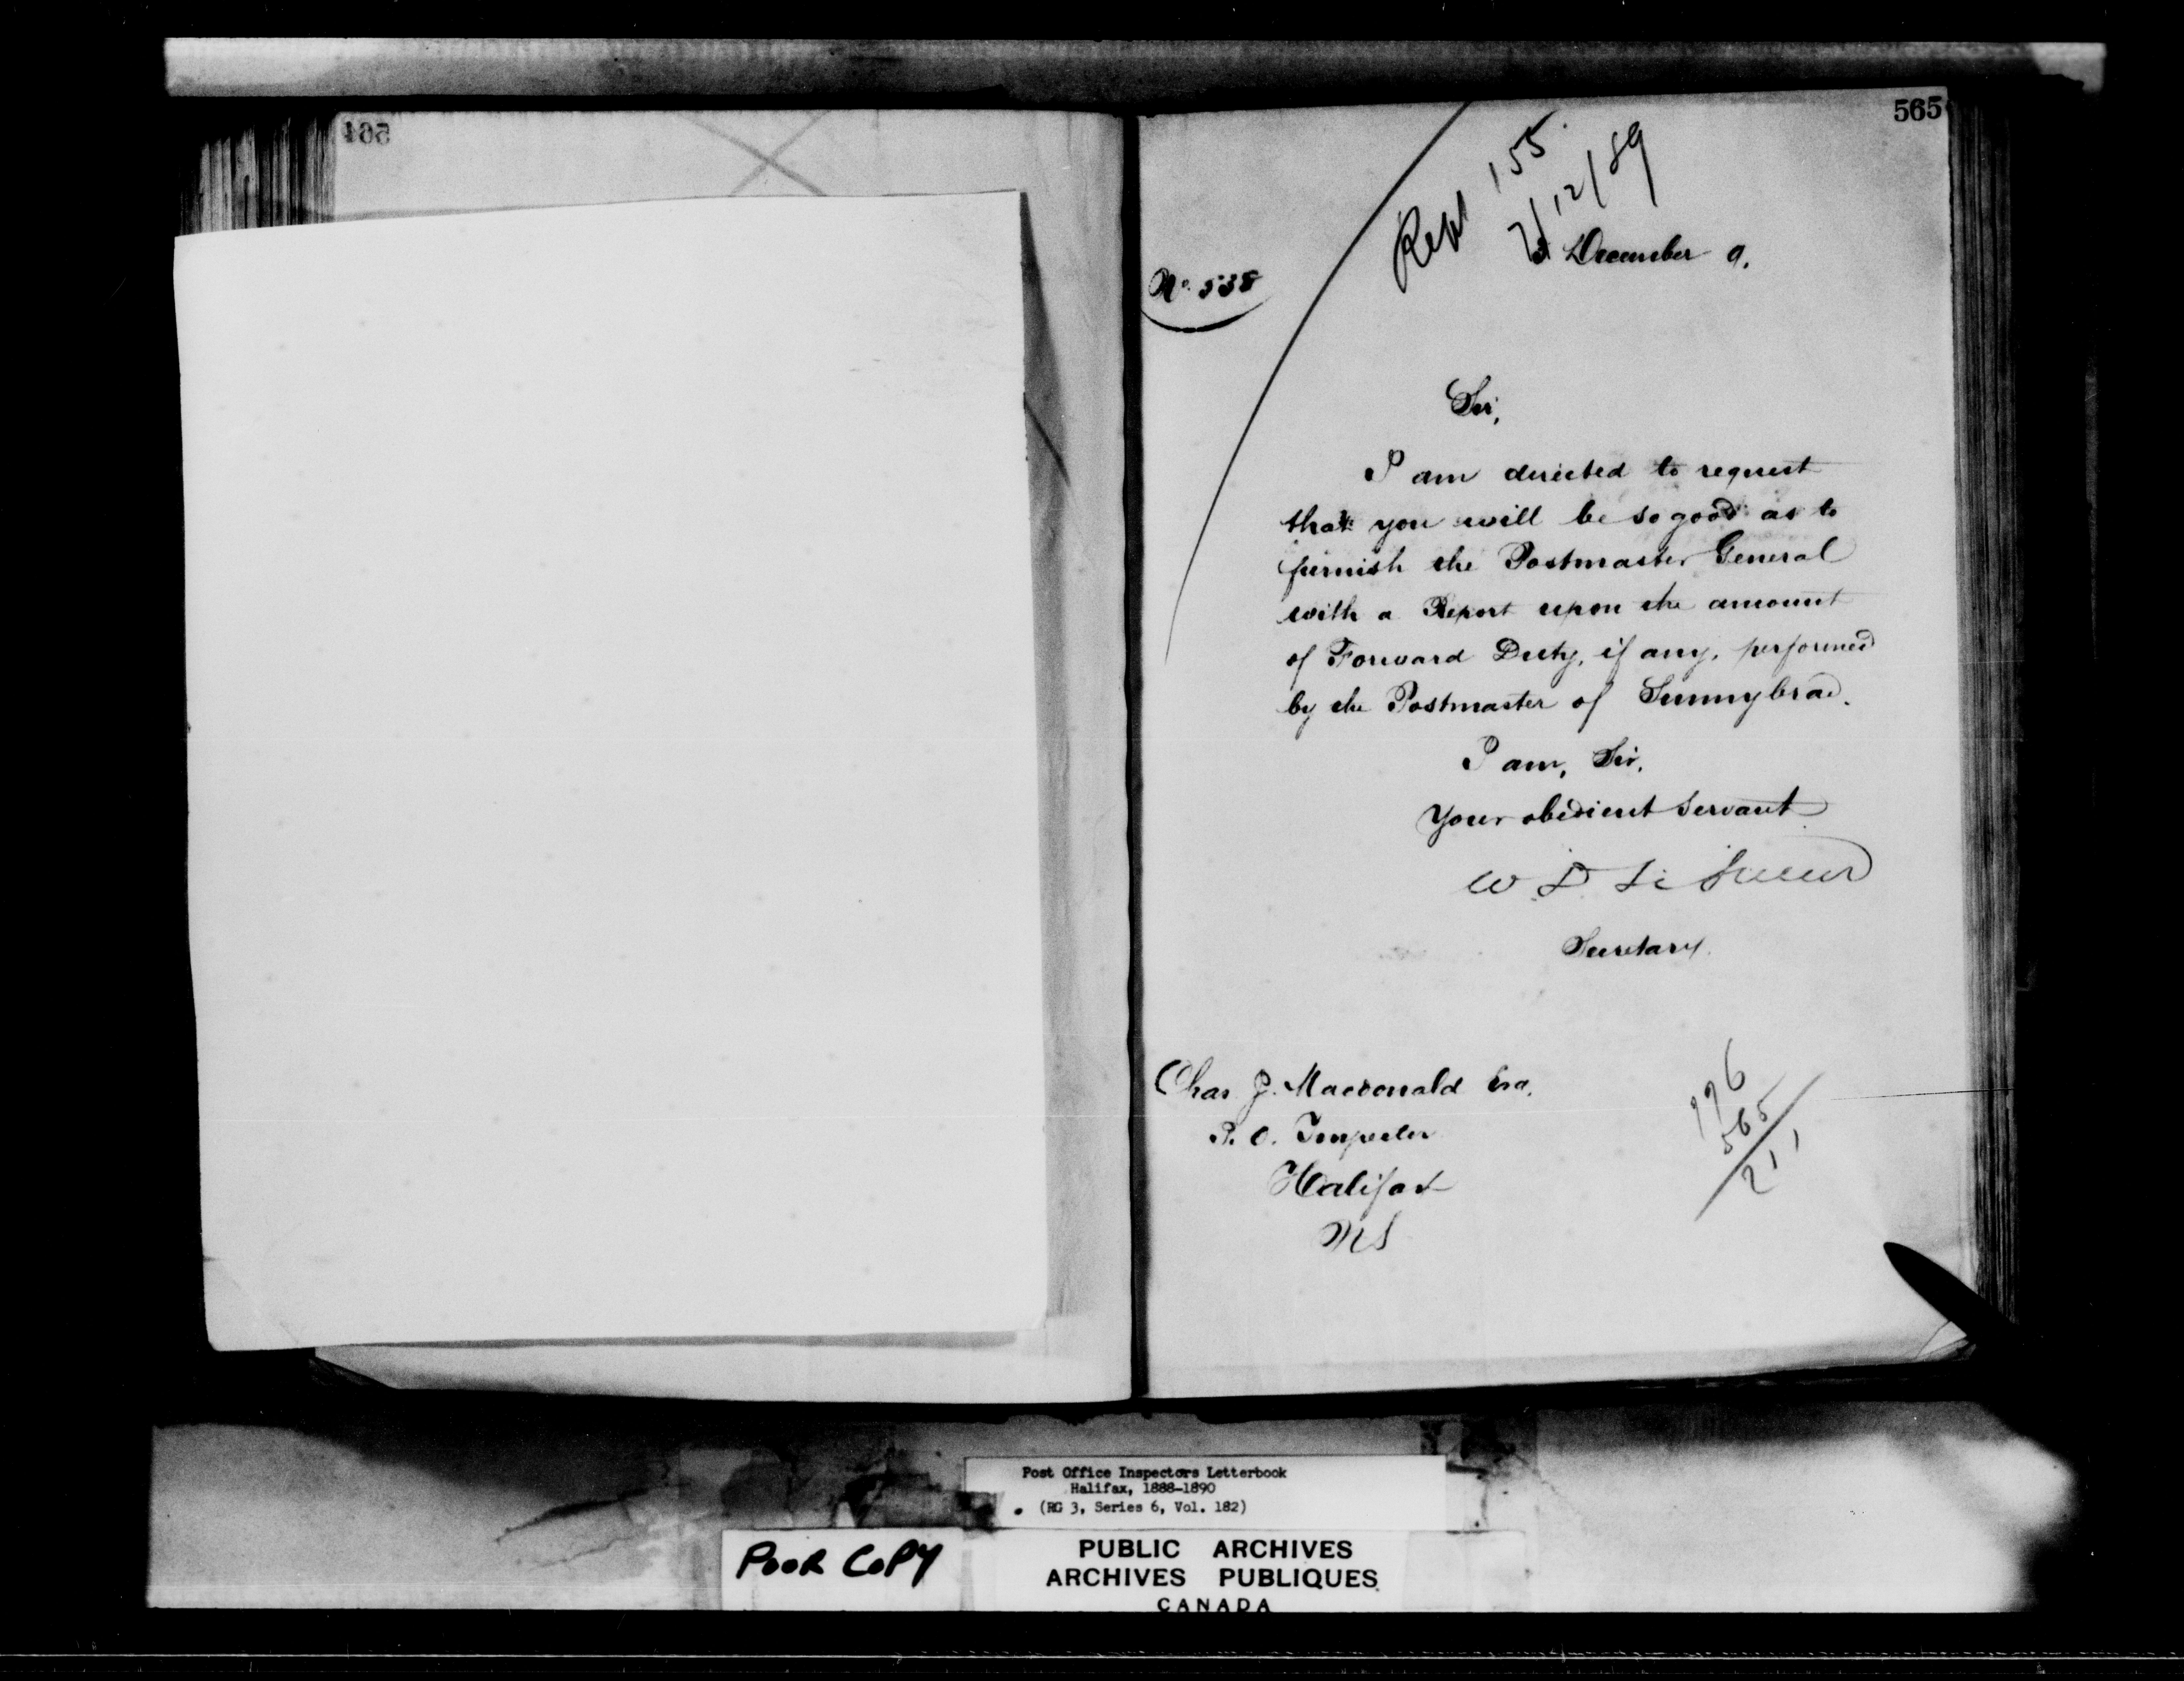 564
565
Rept 155
/12/89
3 December 9.
No. 538
Sir,
I am directed to request
that you will be so good as to
furnish the Postmaster General
with a Report upon the amount
of Forward Duty, if any, performed
by the Postmaster of Sunnybrae.
I am, Sir,
Your obedient Servant
W D Le Sueur
Secretary.
Chas. J. Macdonald Esq.
P. O. Inspector
Halifax
NS
776
565
211
Post Office Inspectors Letterbook
Halifax, 1888-1890
(RG 3, Series 6, Vol. 182)
POOR COPY
PUBLIC ARCHIVES
ARCHIVES PUBLIQUES
CANADA